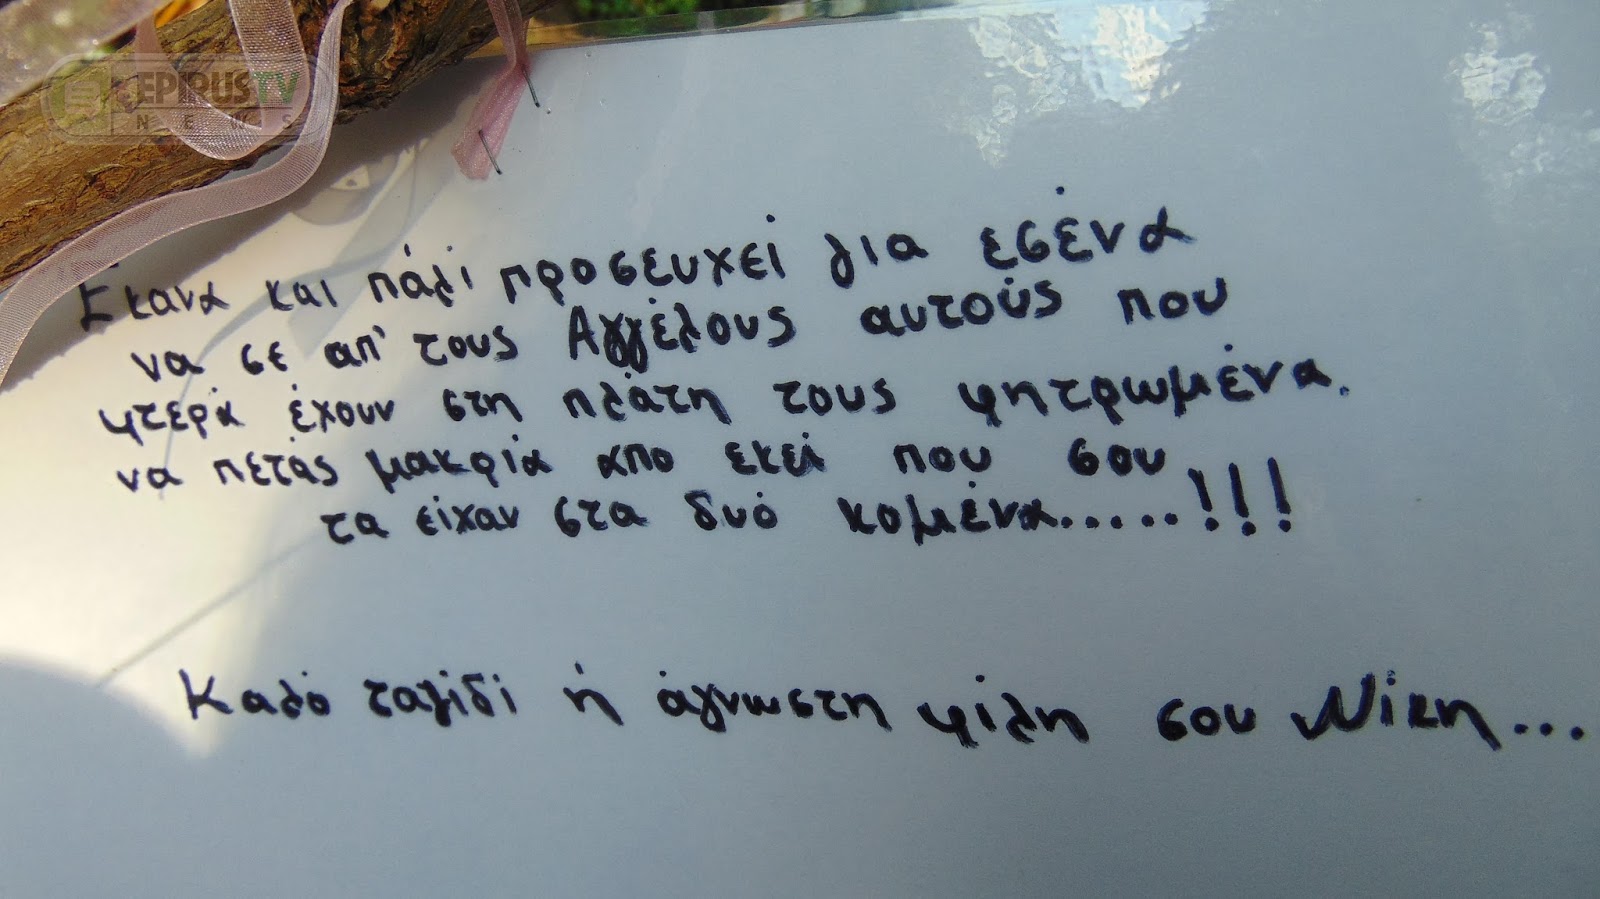 EPIRUSTV
NEWS
Έκανα και πάλι προσευχεί για εσένα
να σε απ' τους Αγγέλους αυτούς που
φτερά έχουν στη πλάτη τους φητρωμένα.
να πετάς μακριά απο εκεί που σου
τα είχαν στα δυό κομένα.....!!!
Καλό ταξίδι ή άγνωστη φίλη σου Νίκη...